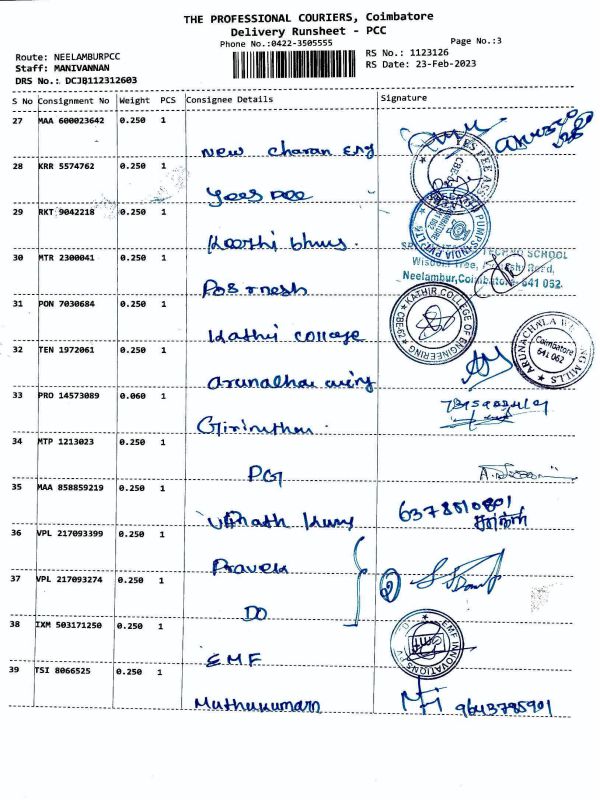 THE PROFESSIONAL COURIERS, Coimbatore
Delivery Runsheet - PCC
Phone No.:0422-3505555
Page No.:3
Route: NEELAMBURPCC
RS No.: 1123126
Staff: MANIVANNAN
RS Date: 23-Feb-2023
DRS No.: DCJB112312603
S No Consignment No Weight PCS Consignee Details Signature
27 MAA 600023642 0.250 1
New Charan Eng
28 KRR 5574762 0.250 1
Yees Pee
YES PEE ASS
29 RKT 9042218 0.250 1
Keerthi bhus.
PUMPS INDIA PVT LTD
30 MTR 2300041 0.250 1
TECHNO SCHOOL
Wisdom Tree, Road,
Neelambur, Coimbatore- 641 062.
31 PON 7030684 0.250 1
Kathir College
KATHIR COLLEGE OF ENGINEERING
CBE-62
32 TEN 1972061 0.250 1
ARUNACHALA
MILLS
Coimbatore
641 062
33 PRO 14573089 0.060 1
34 MTP 1213023 0.250 1
PG
35 MAA 858859219 0.250 1
6378810801
36 VPL 217093399 0.250 1
Praveen
37 VPL 217093274 0.250 1
DO
38 IXM 503171250 0.250 1
EMF
EMF INNOVATIONS
39 TSI 8066525 0.250 1
Muthukumarn
9643795901